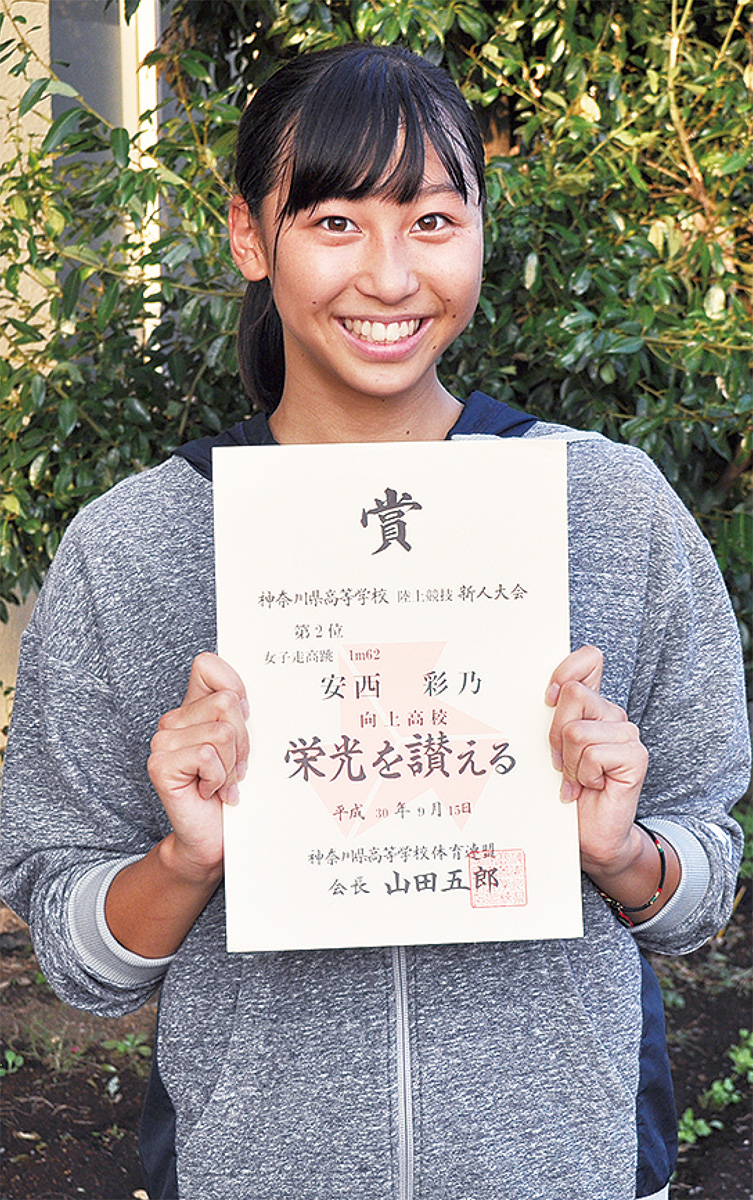 賞
神奈川県高等学校 陸上競技 新人大会
第2位
女子走高跳 1m62
安西 彩乃
向上高校
栄光を讃える
平成 30 年 9 月 15日
神奈川県高等学校体育連盟
会長 山田五郎